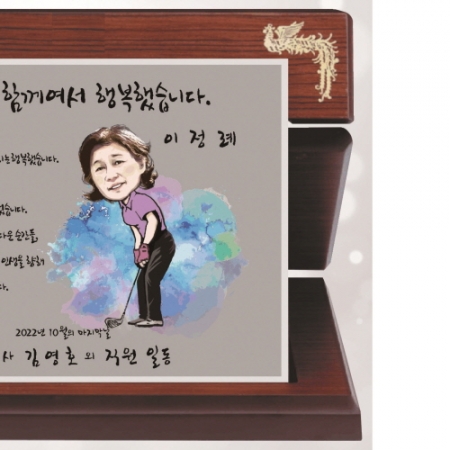 함께여서 행복했습니다.
이 정 례
는행복했습니다.
었습니다.
다운 순간들,
인생을 함께
다.
2022년 10월의 마지막날
사 김영호 외 직원 일동